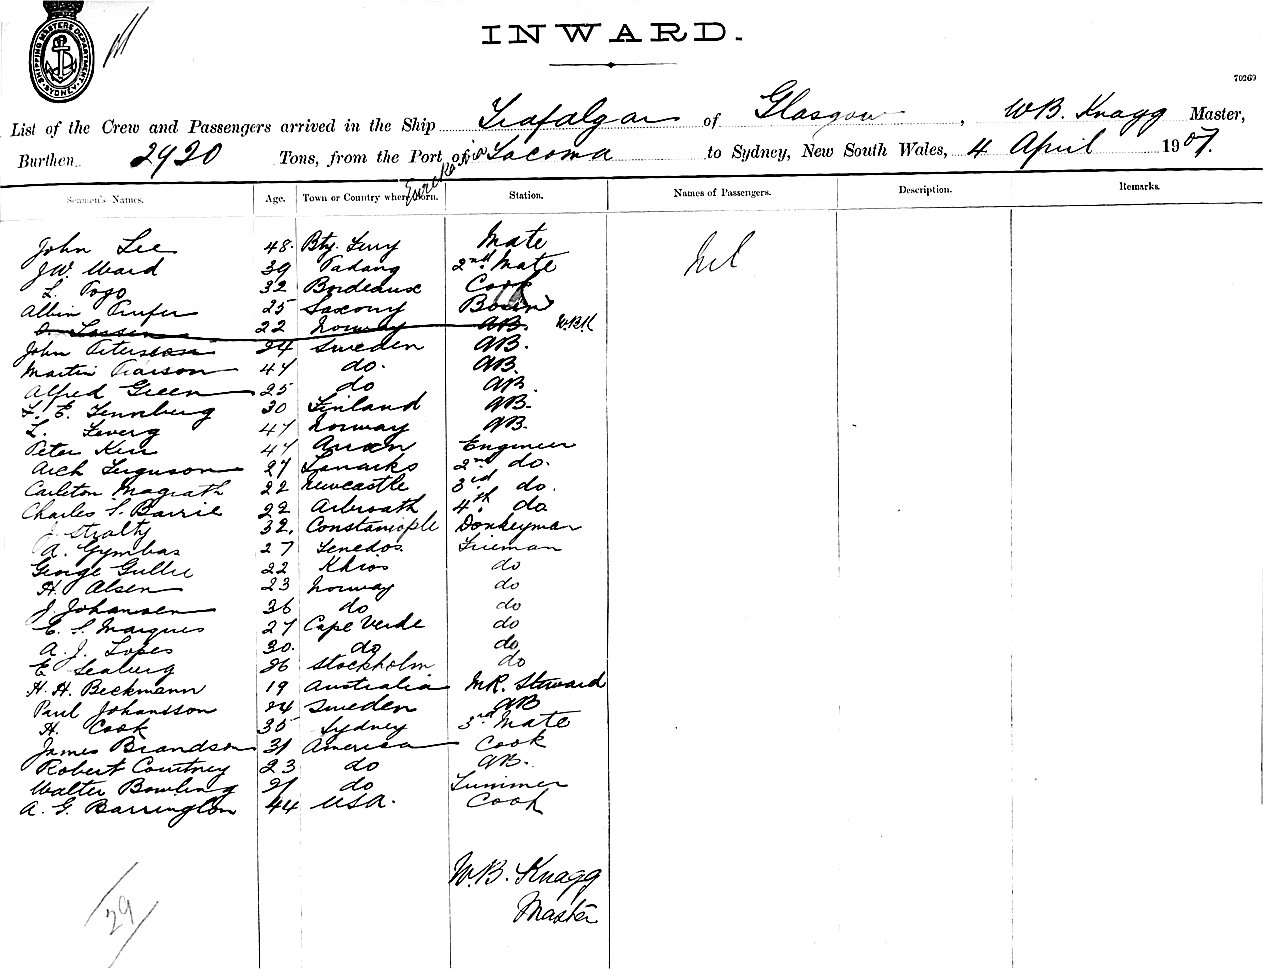 SHIPPING MASTERS DEPARTMENT SYDNEY
INWARD.
70269
List of the Crew and Passengers arrived in the Ship Trafalgar of Glasgow, WB. Knagg Master,
Burthen 2920 Tons, from the Port of Tacoma via Eureka to Sydney, New South Wales, 4 April 1907.
Seamen's Names. Age. Town or Country where Born. Station. Names of Passengers. Description. Remarks.
John Lee 48. Bty. Ferry Mate Nil
J.W. Ward 39 Padang 2nd Mate
L. Togo 32 Bordeaux Cook
Albin 25 Saxony Bosun
22 Norway AB. W.B.K
John Petersson 24 Sweden AB.
Martin Pearson 47 do. AB.
Alfred Green 25 do AB.
L. E. Tennberg 30 Finland AB.
L. 47 Norway AB.
Peter Kerr 47 Engineer
Arch Ferguson 27 Lanarks 2nd do.
Carleton Magrath 22 Newcastle 3rd do.
Charles S. Barrie 22 Arbroath 4th do
J. 32. Donkeyman
A. Gymbas 27 Tenedos. Fireman
George Gullie 22 Khios do
H. Olsen 23 Norway do
J. Johansen 36 do do
E. S. Marques 27 Cape Verde do
A. J. Lopes 30. do do
E Seaberg 26 Stockholm do
H. H. Beckmann 19 Australia MR. Steward
Paul Johansson 24 Sweden AB
H. Cook 35 Sydney 3rd Mate
James Brandson 31 America Cook
Robert Courtney 23 do AB.
Walter Bowling 21 do Trimmer
A. G. Barrington 44 USA. Cook
W.B. Knagg
Master
29